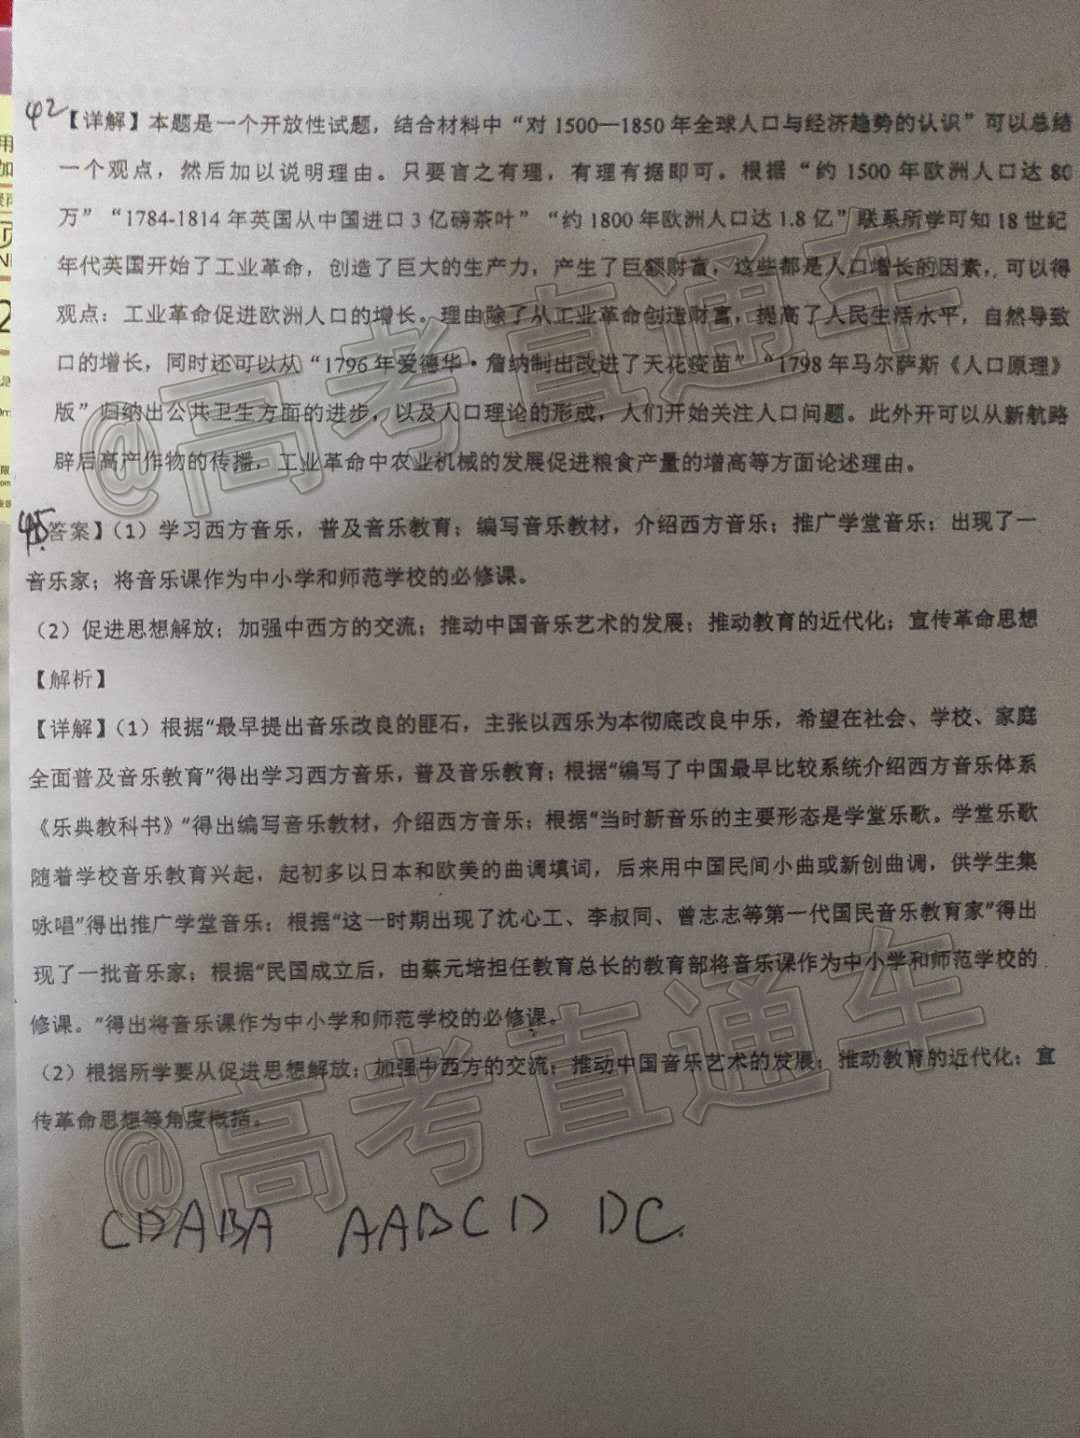 42【详解】本题是一个开放性试题，结合材料中“对1500—1850年全球人口与经济趋势的认识”可以总结
一个观点，然后加以说明理由。只要言之有理，有理有据即可。根据“约1500年欧洲人口达80
万”“1784-1814年英国从中国进口3亿磅茶叶”“约1800年欧洲人口达1.8亿”联系所学可知18世纪
年代英国开始了工业革命，创造了巨大的生产力，产生了巨额财富，这些都是人口增长的因素，可以得
观点：工业革命促进欧洲人口的增长。理由除了从工业革命创造财富，提高了人民生活水平，自然导致
口的增长，同时还可以从“1796年爱德华·詹纳制出改进了天花疫苗”“1798年马尔萨斯《人口原理》
版”归纳出公共卫生方面的进步，以及人口理论的形成，人们开始关注人口问题。此外开可以从新航路
辟后高产作物的传播，工业革命中农业机械的发展促进粮食产量的增高等方面论述理由。
45答案】（1）学习西方音乐，普及音乐教育；编写音乐教材，介绍西方音乐；推广学堂音乐；出现了一
音乐家；将音乐课作为中小学和师范学校的必修课。
（2）促进思想解放；加强中西方的交流；推动中国音乐艺术的发展；推动教育的近代化；宣传革命思想
【解析】
【详解】（1）根据“最早提出音乐改良的匪石，主张以西乐为本彻底改良中乐，希望在社会、学校、家庭
全面普及音乐教育”得出学习西方音乐，普及音乐教育；根据“编写了中国最早比较系统介绍西方音乐体系
《乐典教科书》”得出编写音乐教材，介绍西方音乐；根据“当时新音乐的主要形态是学堂乐歌。学堂乐歌
随着学校音乐教育兴起，起初多以日本和欧美的曲调填词，后来用中国民间小曲或新创曲调，供学生集
咏唱”得出推广学堂音乐；根据“这一时期出现了沈心工、李叔同、曾志忞等第一代国民音乐教育家”得出
现了一批音乐家；根据“民国成立后，由蔡元培担任教育总长的教育部将音乐课作为中小学和师范学校的
修课。”得出将音乐课作为中小学和师范学校的必修课。
（2）根据所学要从促进思想解放；加强中西方的交流；推动中国音乐艺术的发展；推动教育的近代化；宣
传革命思想等角度概括。
CDABA AABCD DC.
@高考直通车
@高考直通车